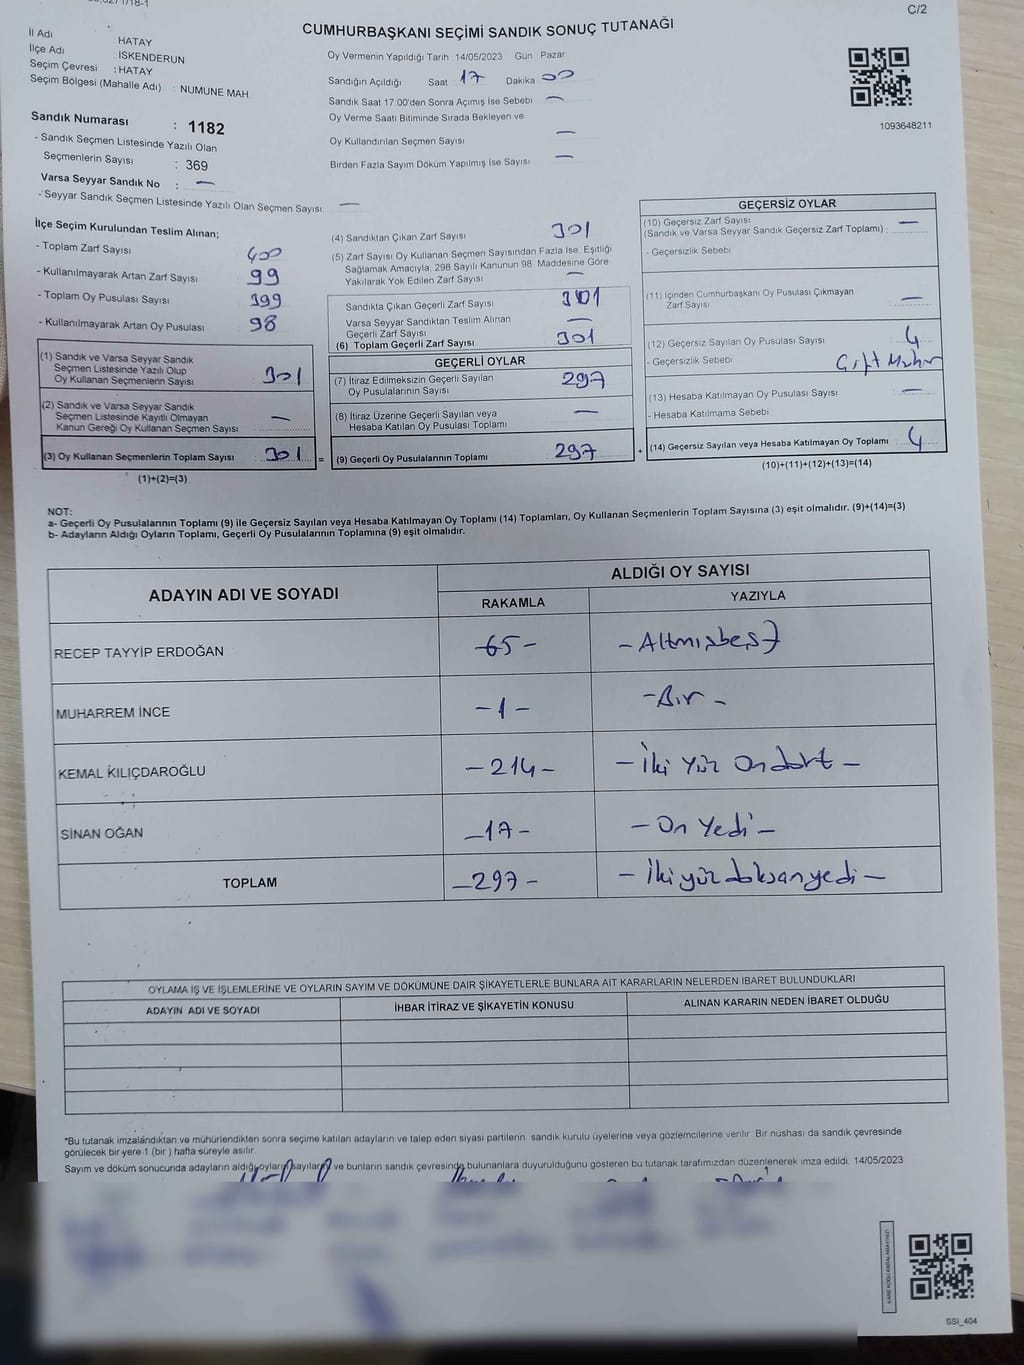 C/2
CUMHURBAŞKANI SEÇİMİ SANDIK SONUÇ TUTANAĞI
İl Adı : HATAY
İlçe Adı : İSKENDERUN
Seçim Çevresi : HATAY
Seçim Bölgesi (Mahalle Adı) : NUMUNE MAH
Sandık Numarası : 1182
- Sandık Seçmen Listesinde Yazılı Olan
Seçmenlerin Sayısı : 369
Varsa Seyyar Sandık No : —
- Seyyar Sandık Seçmen Listesinde Yazılı Olan Seçmen Sayısı: —
Oy Vermenin Yapıldığı Tarih 14/05/2023 Gün Pazar
Sandığın Açıldığı Saat 17 Dakika 00
Sandık Saat 17:00'den Sonra Açımış İse Sebebi —
Oy Verme Saati Bitiminde Sırada Bekleyen ve
Oy Kullandırılan Seçmen Sayısı —
Birden Fazla Sayım Döküm Yapılmış İse Sayısı —
1093648211
İlçe Seçim Kurulundan Teslim Alınan;
- Toplam Zarf Sayısı 400
- Kullanılmayarak Artan Zarf Sayısı 99
- Toplam Oy Pusulası Sayısı 399
- Kullanılmayarak Artan Oy Pusulası 98
(1) Sandık ve Varsa Seyyar Sandık
Seçmen Listesinde Yazılı Olup
Oy Kullanan Seçmenlerin Sayısı 301
(2) Sandık ve Varsa Seyyar Sandık
Seçmen Listesinde Kayıtlı Olmayan
Kanun Gereği Oy Kullanan Seçmen Sayısı —
(3) Oy Kullanan Seçmenlerin Toplam Sayısı 301 =
(1)+(2)=(3)
(4) Sandıktan Çıkan Zarf Sayısı 301
(5) Zarf Sayısı Oy Kullanan Seçmen Sayısından Fazla İse, Eşitliği
Sağlamak Amacıyla; 298 Sayılı Kanunun 98. Maddesine Göre
Yakılarak Yok Edilen Zarf Sayısı —
Sandıkta Çıkan Geçerli Zarf Sayısı 301
Varsa Seyyar Sandıktan Teslim Alınan
Geçerli Zarf Sayısı —
(6) Toplam Geçerli Zarf Sayısı 301
GEÇERLİ OYLAR
(7) İtiraz Edilmeksizin Geçerli Sayılan
Oy Pusulalarının Sayısı 297
(8) İtiraz Üzerine Geçerli Sayılan veya
Hesaba Katılan Oy Pusulası Toplamı —
(9) Geçerli Oy Pusulalarının Toplamı 297 +
GEÇERSİZ OYLAR
(10) Geçersiz Zarf Sayısı —
(Sandık ve Varsa Seyyar Sandık Geçersiz Zarf Toplamı) :
- Geçersizlik Sebebi
(11) İçinden Cumhurbaşkanı Oy Pusulası Çıkmayan
Zarf Sayısı : —
(12) Geçersiz Sayılan Oy Pusulası Sayısı : 4
- Geçersizlik Sebebi Çift Mühür
(13) Hesaba Katılmayan Oy Pusulası Sayısı : —
- Hesaba Katılmama Sebebi
(14) Geçersiz Sayılan veya Hesaba Katılmayan Oy Toplamı : 4
(10)+(11)+(12)+(13)=(14)
NOT:
a- Geçerli Oy Pusulalarının Toplamı (9) ile Geçersiz Sayılan veya Hesaba Katılmayan Oy Toplamı (14) Toplamları, Oy Kullanan Seçmenlerin Toplam Sayısına (3) eşit olmalıdır. (9)+(14)=(3)
b- Adayların Aldığı Oyların Toplamı, Geçerli Oy Pusulalarının Toplamına (9) eşit olmalıdır.
ADAYIN ADI VE SOYADI ALDIĞI OY SAYISI
RAKAMLA YAZIYLA
RECEP TAYYİP ERDOĞAN -65- - Altmışbeş -
MUHARREM İNCE -1- - Bir -
KEMAL KILIÇDAROĞLU -214- - İki Yüz Ondört -
SİNAN OĞAN -17- - On Yedi -
TOPLAM -297- - İki yüz doksanyedi -
OYLAMA İŞ VE İŞLEMLERİNE VE OYLARIN SAYIM VE DÖKÜMÜNE DAİR ŞİKAYETLERLE BUNLARA AİT KARARLARIN NELERDEN İBARET BULUNDUKLARI
ADAYIN ADI VE SOYADI İHBAR İTİRAZ VE ŞİKAYETİN KONUSU ALINAN KARARIN NEDEN İBARET OLDUĞU
*Bu tutanak imzalandıktan ve mühürlendikten sonra seçime katılan adayların ve talep eden siyasi partilerin sandık kurulu üyelerine veya gözlemcilerine verilir. Bir nüshası da sandık çevresinde
görülecek bir yere 1 (bir ) hafta süreyle asılır.
Sayım ve döküm sonucunda adayların aldığı oyların sayılarını ve bunların sandık çevresinde bulunanlara duyurulduğunu gösteren bu tutanak tarafımızdan düzenlenerek imza edildi. 14/05/2023
SSI_404